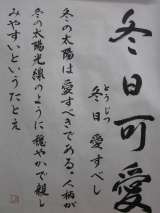 冬日可愛
とうじつ
冬日愛すべし
冬の太陽は愛すべきである。人柄が
冬の太陽光線のように穏やかで親し
みやすいというたとえ